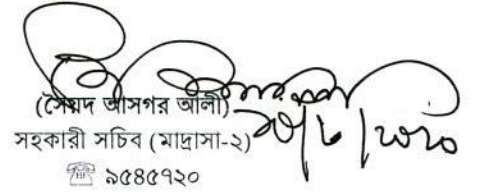 (সৈয়দ আসগর আলী)
সহকারী সচিব (মাদ্রাসা-২)
৯৫৪৫৭২০